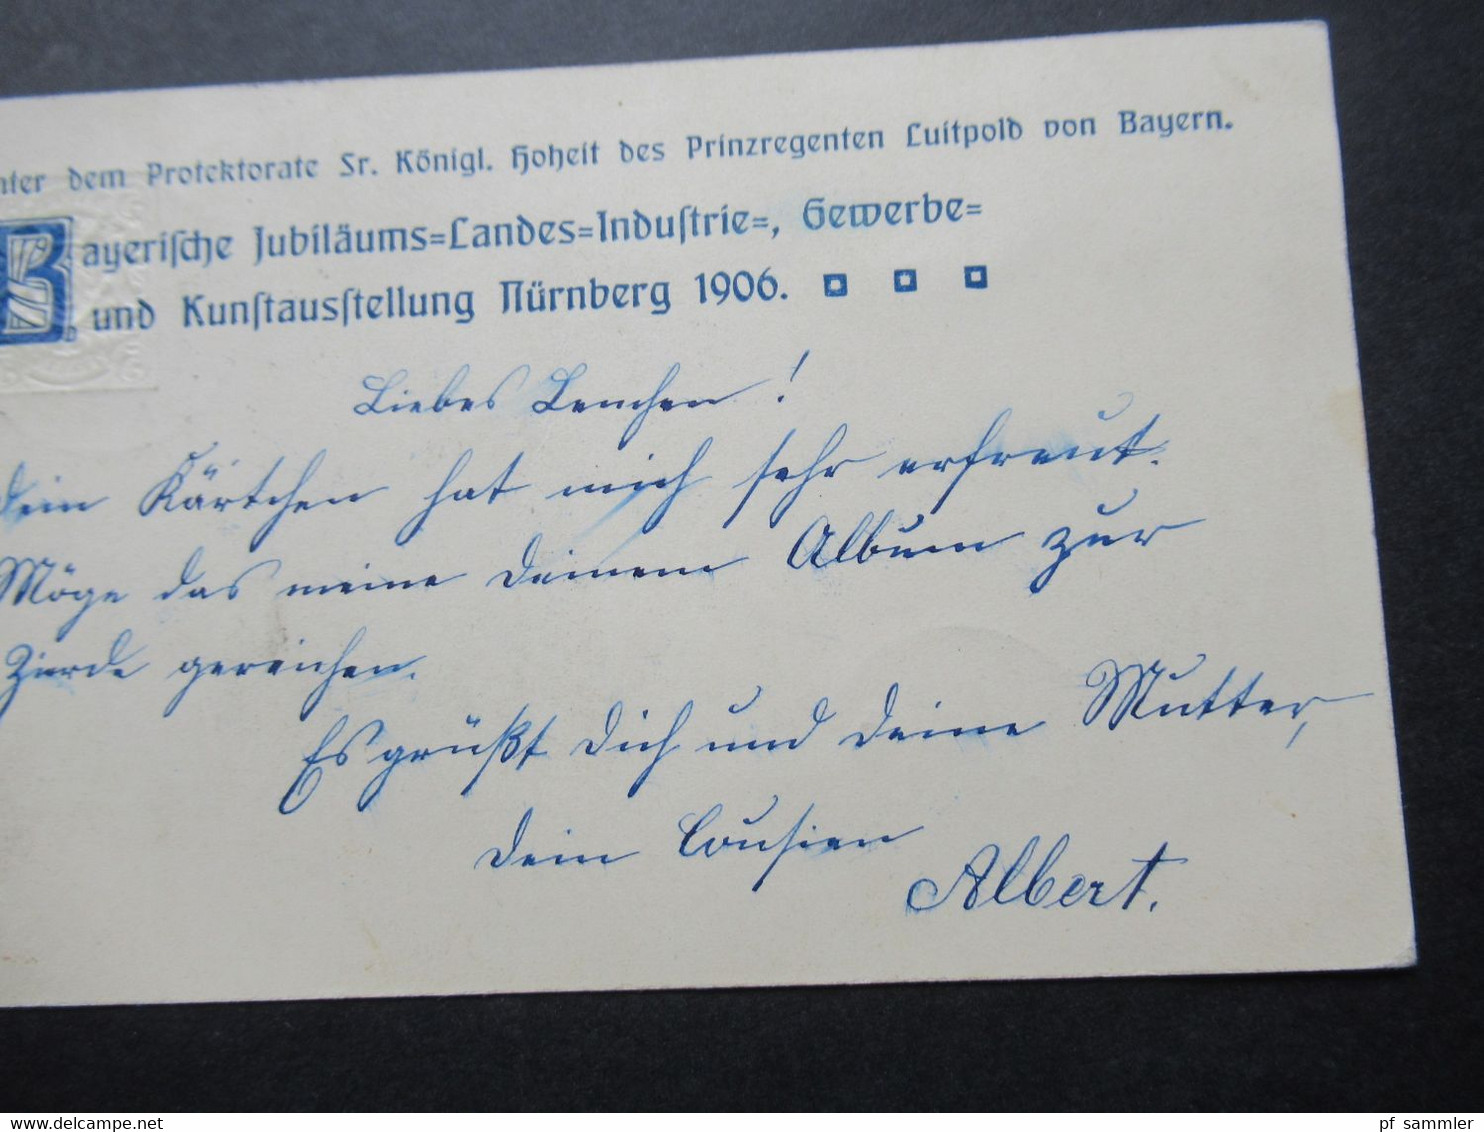 nter dem Protektorate Sr. Königl. Hoheit des Prinzregenten Luitpold von Bayern.
Bayerische Jubiläums=Landes=Industrie=, Gewerbe=
und Kunstausstellung Nürnberg 1906.
Liebes Lenchen!
Dein Kärtchen hat mich sehr erfreut.
Möge das meine deinem Album zur
Zierde gereichen.
Es grüßt dich und deine Mutter,
dein Cousien
Albert.
pf sammler